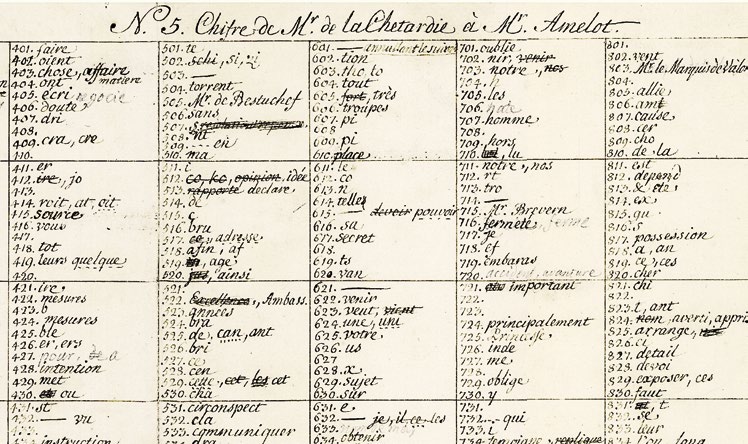 N.º 5. Chifre de Mr. de la Chetardie à Mr. Amelot.
401. faire
402. oient
403. chose, affaire
matiere
404. ont
405. ecri
406. doute
407. dri
408.
409. cra, cre
410.
411. er
412. ire, jo
413.
414. roit, at, oit
415. source
416. vous
417.
418. tot
419. leurs quelque
420.
421. ire
422. mesures
423. b
424. mesures
425. ble
426. er, ers
427. pour, de a
428. intention
429. met
430. ou
431. st
432. — vu
433. instruction
501. te
502. schi, si
503. —
504. torrent
505. Mr. de Bestuchef
506. sans
507.
508. ni
509. --- en
510. ma
511. i
512. co, ko, opinion, idée
513. rapporte declare
514. de
515. c
516. bru
517. ce, adresse
518. afin, af
519. age
520. ainsi
521.
522. Excellence, Ambass.
523. années
524. bra
525. de, can, ant
526. bri
527. ce
528. cen
529. cette, cet, les cet
530. cha
531. circonspect
532. cla
533. communiquer
601. —
602. tion
603. the, to
604. tout
605. fort, très
606. troupes
607. pi
608
609. pi
610. place
611. le
612. co
613. n
614. telles
615. — devoir pouvoir
616. sa
617. secret
618.
619. ts
620. van
621. —
622. venir
623. veut, vient
624. une, uni
625. votre
626. us
627
628. x
629. sujet
630. sur
631. e
632. — je, il ce les
633.
634. obtenir
701. oublie
702. nir, venir
703. notre, nos
704. h
705. les
706. hate
707. homme
708.
709. hors
710. lu
711. notre, nos
712. rt
713. tro
714. —
715. Mr. Brevern
716. fermeté, ferme
717. je
718. ef
719. embaras
720. accident, avanture
721. important
722.
723.
724. principalement
725. Princesse
726. inde
727. me
728.
729. oblige
730. y
731.
732. --- qui
733. l
734. temoigne, replique
801.
802. vent
803. Mr. le Marquis de Valor
804.
805. allié
806. amt
807. cause
808. cer
809. cho
810. de la
811. est
812. depend
813. &. été
814. ex
815. qu
816. s
817. possession
818. a, an
819. ce, ces
820. cher
821. chi
822.
823. t, ant
824. nom, averti, appris
825. arrange
826. ci
827. detail
828. devoi
829. exposer, ces
830. faut
831. t
832. se
833. leur